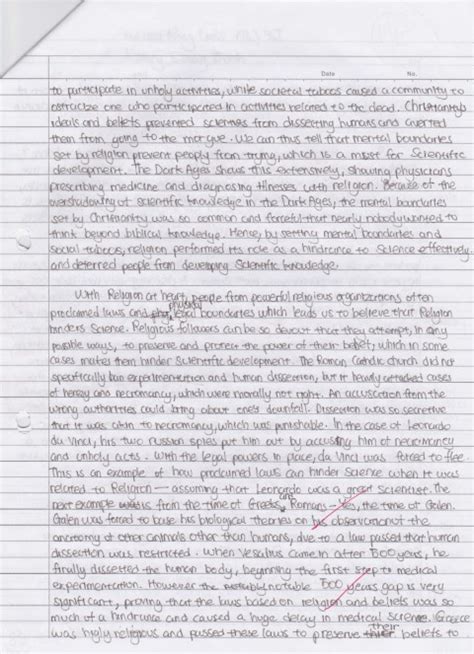 Date No.
to participate in unholy activities, while societal taboos caused a community to
ostracize one who participated in activities related to the dead. Christianity's
ideals and beliefs prevented scientists from dissecting humans and averted
them from going to the morgue. We can thus tell that mental boundaries
set by religion prevent people from trying, which is a must for scientific
development. The Dark Ages shows this extensively, showing physicians
prescribing medicine and diagnosing illnesses with religion. Because of the
overshadowing of scientific knowledge in the Dark Ages, the mental boundaries
set by Christianity was so common and forceful that nearly nobody wanted to
think beyond biblical knowledge. Hence, by setting mental boundaries and
social taboos, religion performed its role as a hindrance to Science effectively
and deterred people from developing Scientific knowledge.
With Religion at heart, people from powerful religious organizations often
proclaimed laws and physical legal boundaries which leads us to believe that Religion
hinders Science. Religious followers can be so devout that they attempt, in any
possible ways, to preserve and protect the power of their belief, which in some
cases makes them hinder scientific development. The Roman Catholic church did not
specifically ban experimentation and human dissection, but it heavily attacked cases
of heresy and necromancy, which were morally not right. An accusation from the
wrong authorities could bring about one's downfall. Dissection was so secretive
that it was akin to necromancy, which was punishable. In the case of Leonardo
da Vinci, his two russian spies put him out by accusing him of necromancy
and unholy acts. With the legal powers in place, da Vinci was forced to flee.
This is an example of how proclaimed laws can hinder science when it was
related to Religion – assuming that Leonardo was a great scientist. The
next example is from the time of Greeks and Romans – yes, the time of Galen.
Galen was forced to base his biological theories on his observation of the
anatomy of other animals other than humans, due to a law passed that human
dissection was restricted. When Vesalius came in after 500 years, he
finally dissected the human body, beginning the first step to medical
experimentation. However the notable 500 years gap is very
significant, proving that the laws based on religion and beliefs was so
much of a hindrance and caused a huge delay in medical science. Greece
was higly religious and passed these laws to preserve their beliefs to